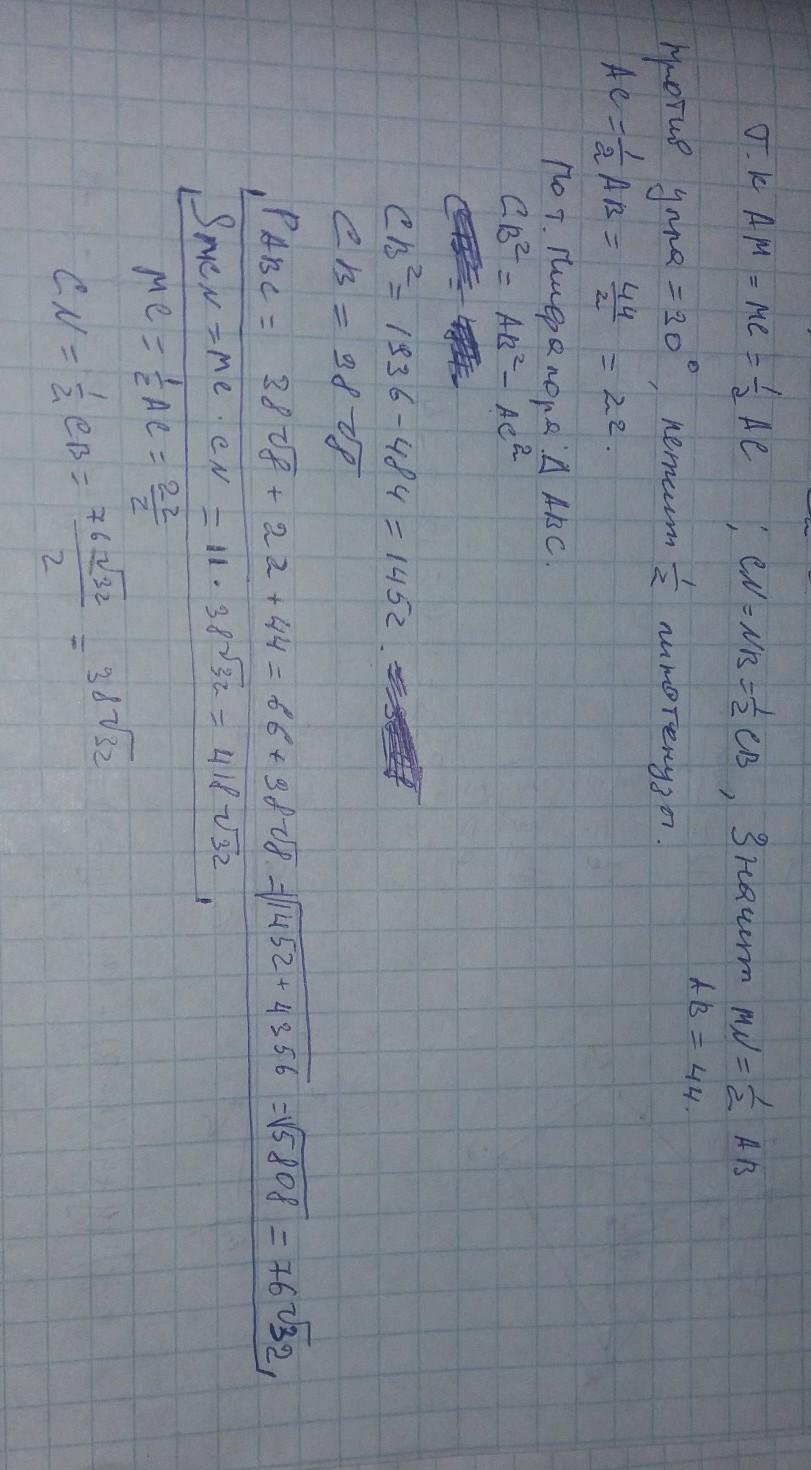 Т.к AM = MC = 1/2 AC ; CN = NB = 1/2 CB , Значит MN = 1/2 AB
AB = 44.
против угла = 30°, лежит 1/2 гипотенузы.
AC = 1/2 AB = 44/2 = 22.
По т. Пифагора: Δ ABC.
CB² = AB² - AC²
CB² = 1936 - 484 = 1452.
CB = 38√8
P ABC = 38√8 + 22 + 44 = 66 + 38√8 = √1452 + 4356 = √5808 = 76√32
S MCN = MC · CN = 11 · 38√32 = 418√32
MC = 1/2 AC = 22/2
CN = 1/2 CB = 76√32/2 = 38√32